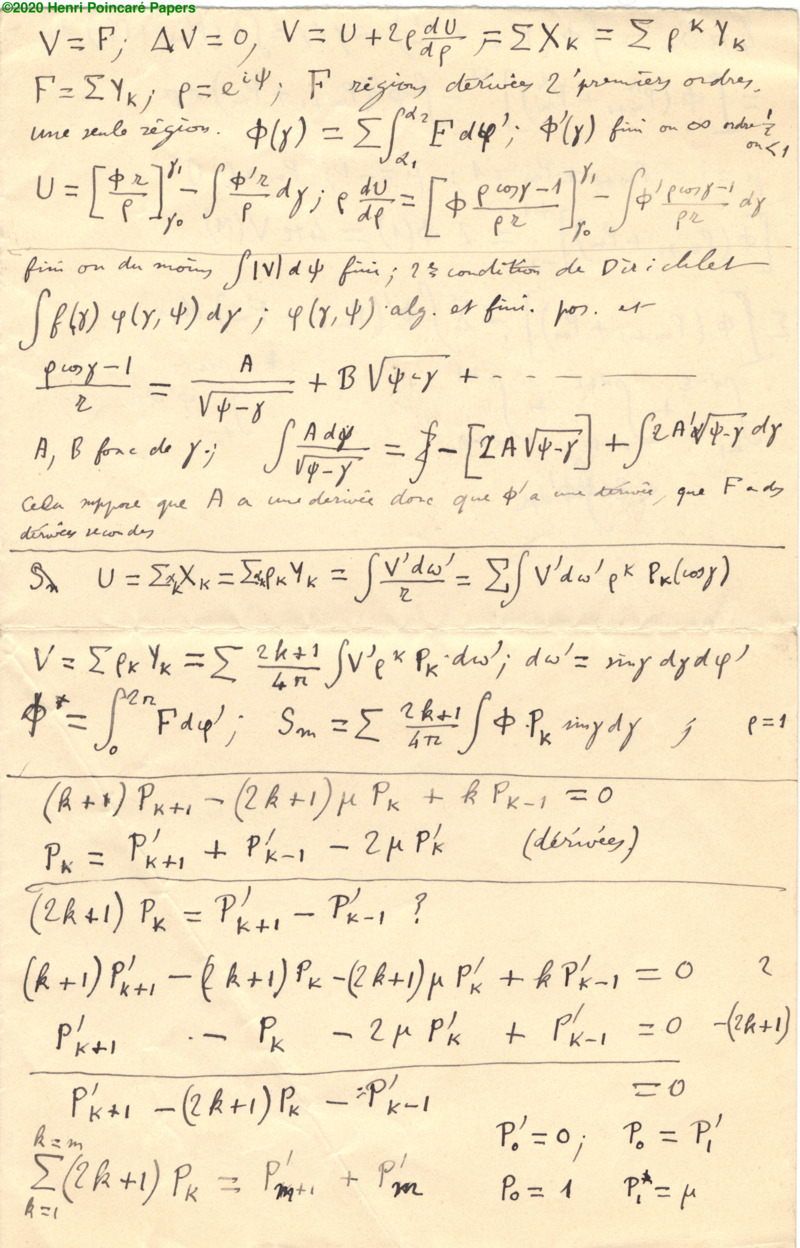 ©2020 Henri Poincaré Papers
V = F; ΔV = 0, V = U + 2ρ dU/dρ = ΣX_K = Σ ρ^K Y_K
F = ΣY_K; ρ = e^{iψ}; F régions dérivées 2 premiers ordres.
une seule région. Φ(γ) = Σ∫_{α₁}^{α₂} F dφ'; Φ'(γ) fini ou ∞ ordre ½ ou <1
U = [Φr/ρ]_{γ₀}^{γ₁} − ∫ Φ'r/ρ dγ; ρ dU/dρ = [Φ (ρ cosγ−1)/(ρr)]_{γ₀}^{γ₁} − ∫Φ' (ρ cosγ−1)/(ρr) dγ
fini ou du moins ∫|V|dψ fini; 2e condition de Dirichlet
∫f(γ) φ(γ,ψ) dγ; φ(γ,ψ) alg. et fini. pos. et
(ρ cosγ−1)/r = A/√(ψ−γ) + B√(ψ−γ) + - - - —
A, B fonc de γ; ∫ A dψ/√(ψ−γ) = − [2A√(ψ−γ)] + ∫2A'√(ψ−γ) dγ
Cela suppose que A a une dérivée donc que Φ' a une dérivée, que F a des
dérivées secondes
S_n U = ΣX_K = Σρ_K Y_K = ∫ V'dω'/r = Σ∫V'dω' ρ^K P_K(cosγ)
V = Σρ_K Y_K = Σ (2k+1)/4π ∫V'ρ^K P_K·dω'; dω' = sinγ dγ dφ'
Φ* = ∫_0^{2π} F dφ'; S_m = Σ (2k+1)/4π ∫ Φ·P_K sinγ dγ ; ρ=1
(k+1) P_{K+1} − (2k+1)μ P_K + k P_{K−1} = 0
P_K = P'_{K+1} + P'_{K−1} − 2μ P'_K (dérivées)
(2k+1) P_K = P'_{K+1} − P'_{K−1} ?
(k+1)P'_{K+1} − (2k+1)P_K −(2k+1)μP'_K + kP'_{K−1} = 0 2
P'_{K+1} · − P_K − 2μ P'_K + P'_{K−1} = 0 −(2k+1)
P'_{K+1} −(2k+1)P_K − P'_{K−1} = 0
P'_0 = 0; P_0 = P'_1
Σ_{k=1}^{k=m} (2k+1) P_K = P'_{m+1} + P'_m
P_0 = 1 P_1 = μ